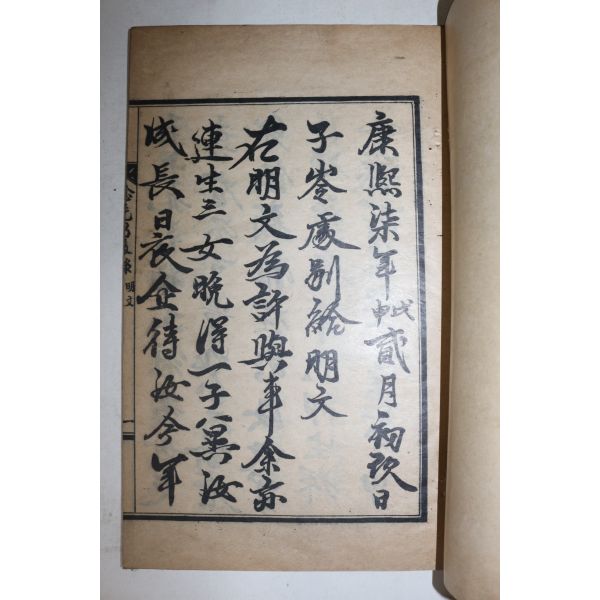 康熙柒年戊申貳月初玖日
子岺處別給明文
右明文爲許與事余亦
連生三女晚得一子冀汝
成長日夜企待汝今年
明文
一